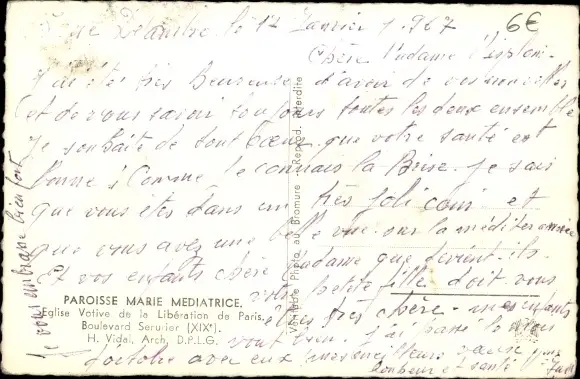 le 12 Janvier 1967
6€
Chère Madame
J'ai été très heureuse d'avoir de vos nouvelles
et de vous savoir toujours toutes les deux ensemble
je souhaite de tout cœur que votre santé est
Bonne. Comme je connais la Brise. je sais
que vous êtes dans un très joli coin et
que vous avez une belle vue sur la méditerannée
Et vos enfants chère Madame que devient-ils
votre petite fille doit vous
être très chère. mes enfants
vont bien. j'ai passé le mois
d'octobre avec eux meilleurs vœux
bonheur et santé
je vous embrasse bien fort
PAROISSE MARIE MEDIATRICE.
Eglise Votive de la Libération de Paris,
Boulevard Serurier (XIX°).
H. Vidal, Arch. D.P.L.G.
Véritable Photo au Bromure - Reprod. interdite